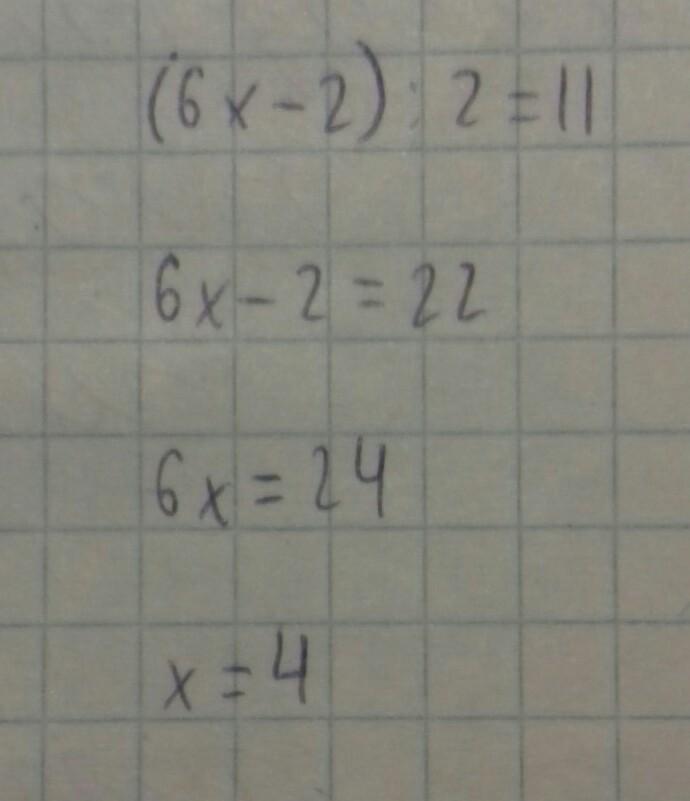 (6x-2):2=11
6x-2=22
6x=24
x=4